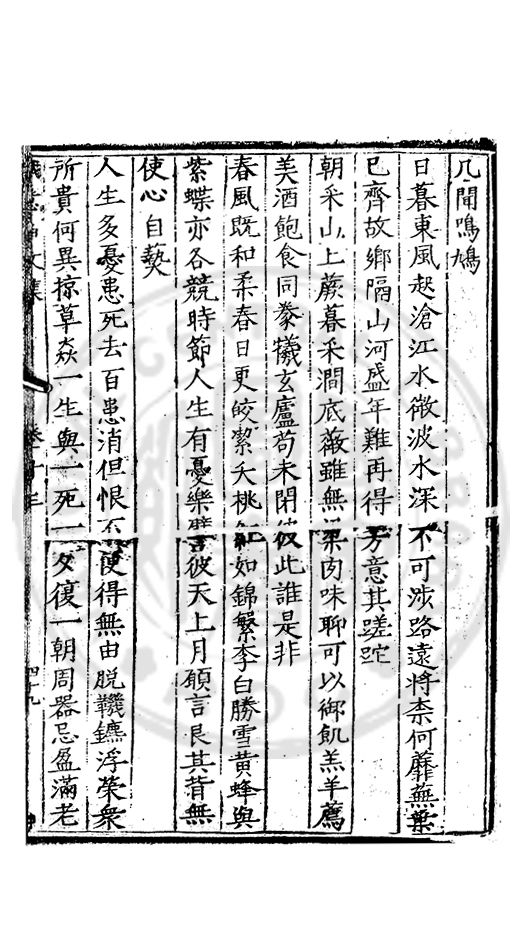 几聞鳴鳩
日暮東風起滄江水微波水深不可涉路遠將柰何蘼蕪葉
已齊故鄉隔山河盛年難再得芳意其蹉跎
朝采山上蕨暮采澗底薇雖無粱肉味聊可以禦飢羔羊薦
美酒飽食同豢犧玄廬苟未閉彼此誰是非
春風既和柔春日更皎絜夭桃紅如錦繁李白勝雪黃蜂與
紫蝶亦各競時節人生有憂樂譬彼天上月願言艮其背無
使心自爇
人生多憂患死去百患消但恨不便得無由脫鞿鑣浮榮衆
所貴何異掠草猋一生與一死一夕復一朝周器忌盈滿老
文集 卷十三 四十九